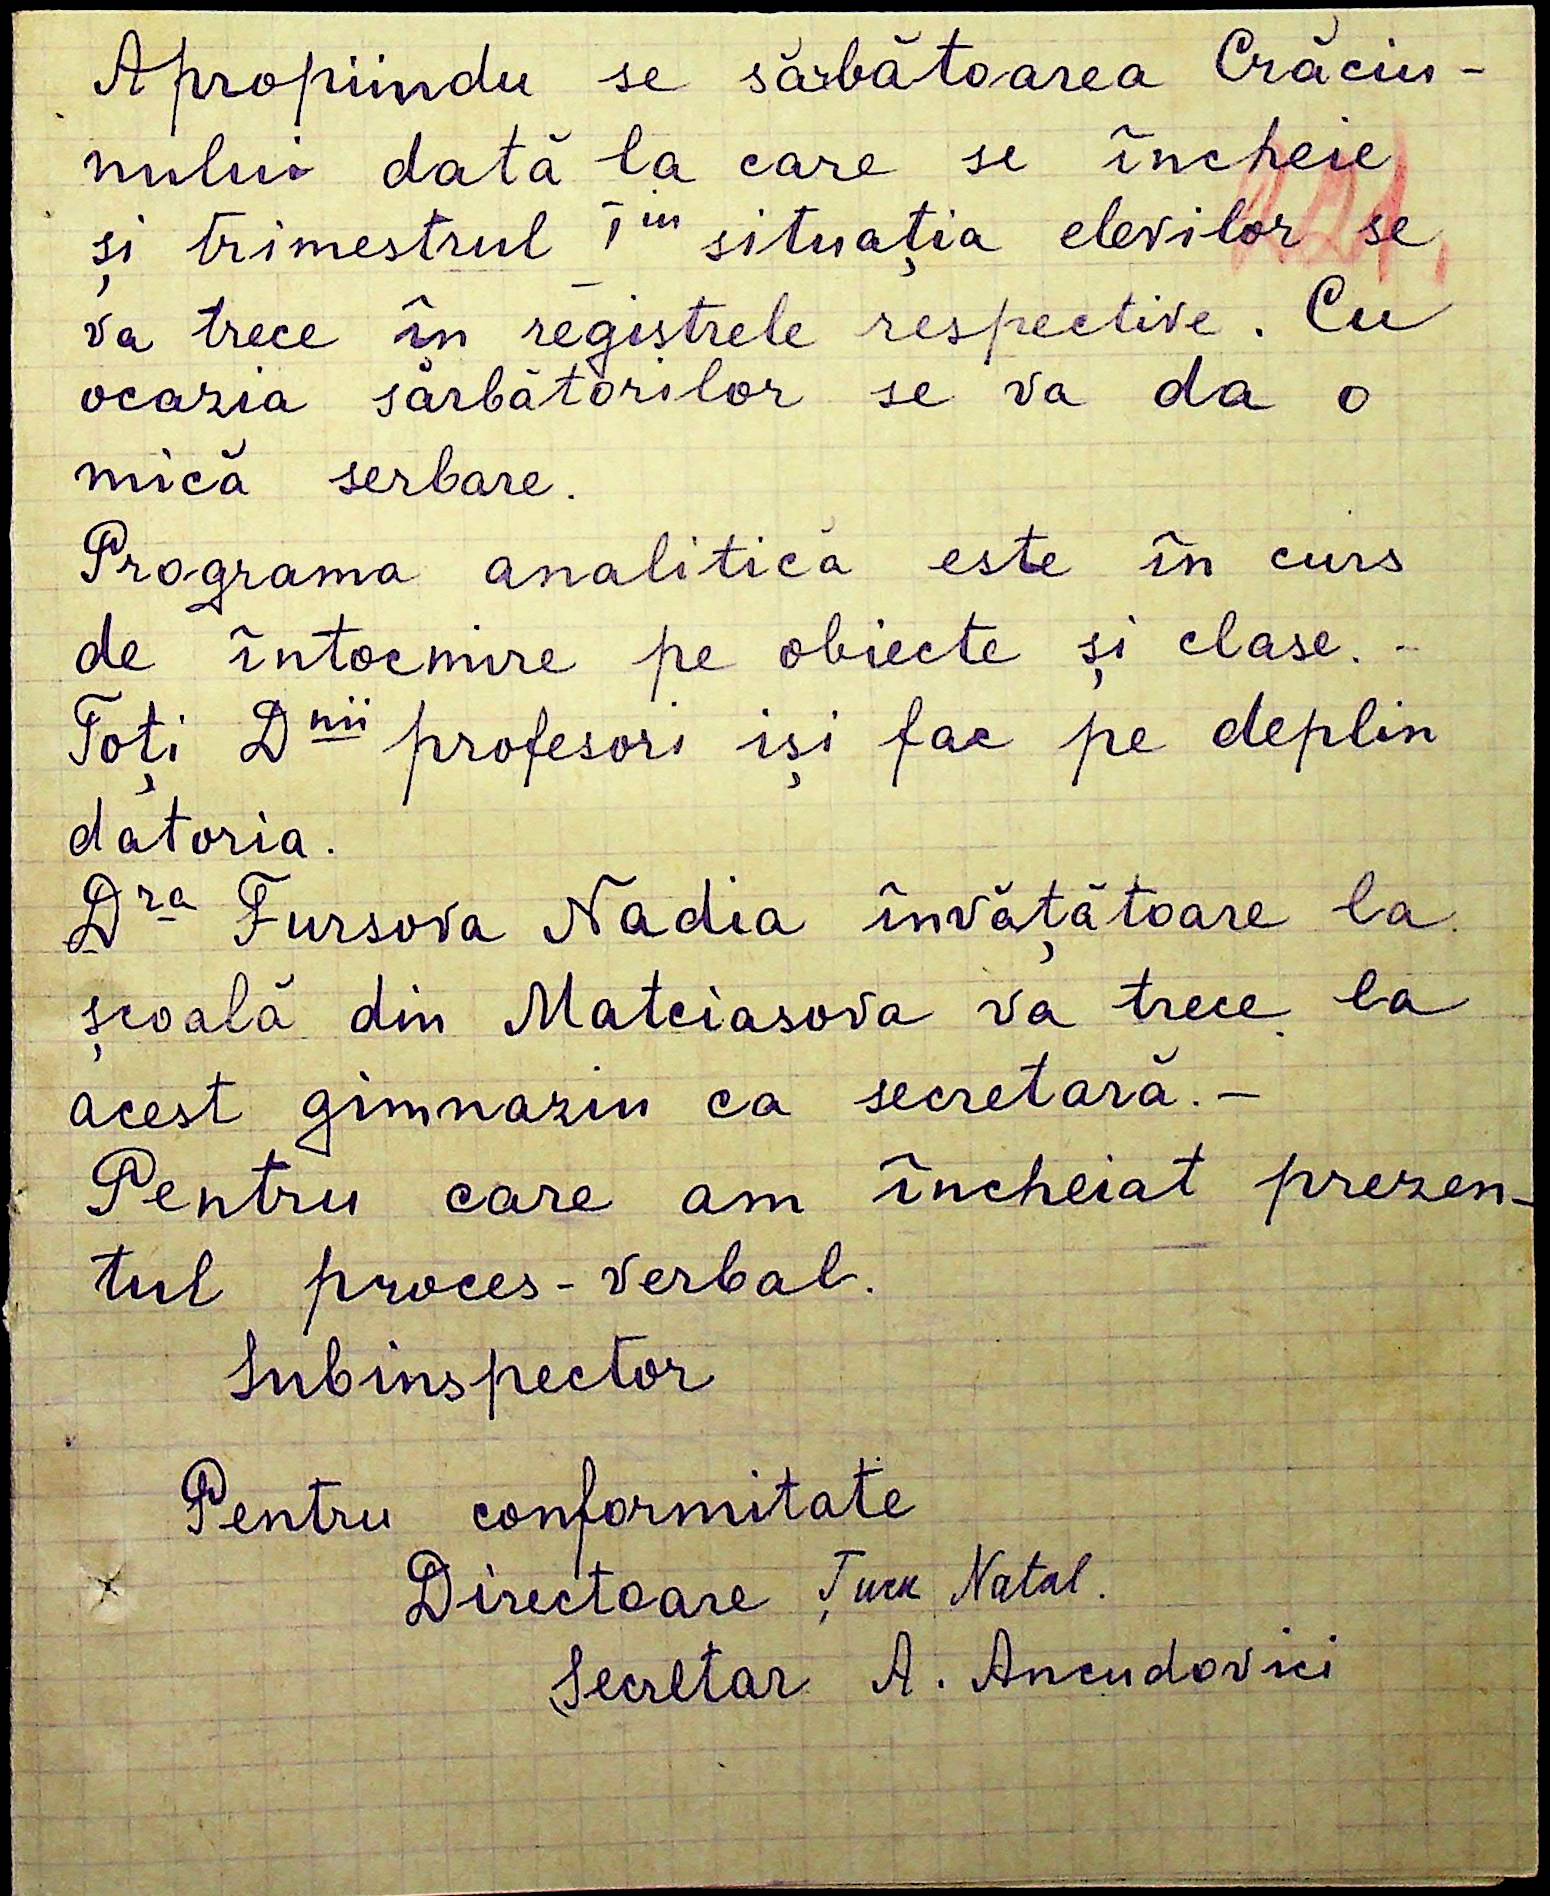 Apropiindu se sărbătoarea Crăciu-
nului dată la care se încheie
și trimestrul I-iu situația elevilor se
va trece în registrele respective. Cu
ocazia sărbătorilor se va da o
mică serbare.
Programa analitică este în curs
de întocmire pe obiecte și clase. -
Toți Dnii profesori iși fac pe deplin
datoria.
Dra Fursova Nadia învățătoare la
școală din Mateiasova va trece la
acest gimnaziu ca secretară. -
Pentru care am încheiat prezen-
tul proces-verbal.
Subinspector
Pentru conformitate
Directoare Natal.
Secretar A. Ancudovici